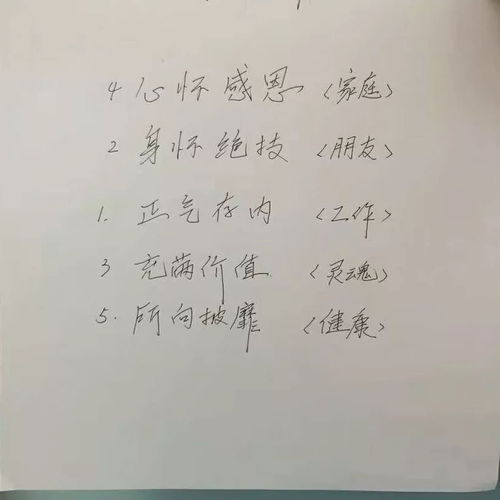 4 心怀感恩 <家庭>
2 身怀绝技 <朋友>
1. 正气存内 <工作>
3 充满价值 <灵魂>
5. 所向披靡 <健康>